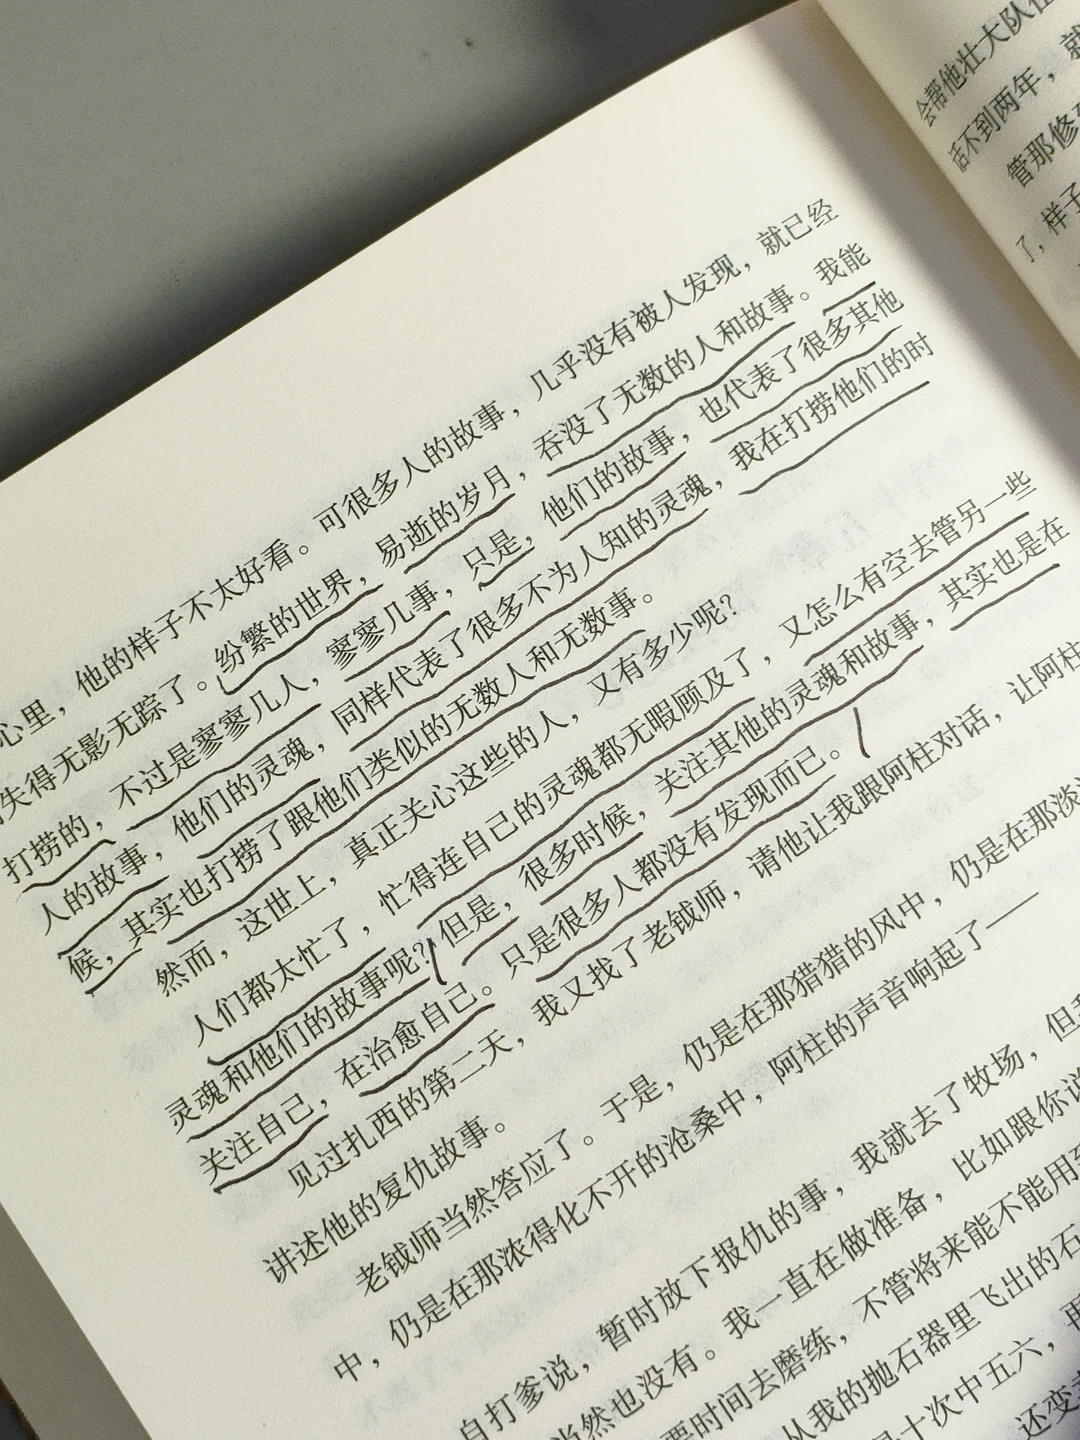 心里，他的样子不太好看。可很多人的故事，几乎没有被人发现，就已经
失得无影无踪了。纷繁的世界，易逝的岁月，吞没了无数的人和故事。我能
打捞的，不过是寥寥几人，寥寥几事，只是，他们的故事，也代表了很多其他
人的故事，他们的灵魂，同样代表了很多不为人知的灵魂，我在打捞他们的时
候，其实也打捞了跟他们类似的无数人和无数事。
然而，这世上，真正关心这些的人，又有多少呢？
人们都太忙了，忙得连自己的灵魂都无暇顾及了，又怎么有空去管另一些
灵魂和他们的故事呢？但是，很多时候，关注其他的灵魂和故事，其实也是在
关注自己，在治愈自己。只是很多人都没有发现而已。
见过扎西的第二天，我又找了老钺师，请他让我跟阿柱对话，让阿柱
讲述他的复仇故事。
老钺师当然答应了。于是，仍是在那猎猎的风中，仍是在那淡淡
中，仍是在那浓得化不开的沧桑中，阿柱的声音响起了——
自打爹说，暂时放下报仇的事，我就去了牧场，但
当然也没有。我一直在做准备，比如跟你说
要时间去磨练，不管将来能不能用到
从我的抛石器里飞出的石
十次中五六，再
还变
会帮他壮大队伍
活不到两年，就
管那修
了，样子